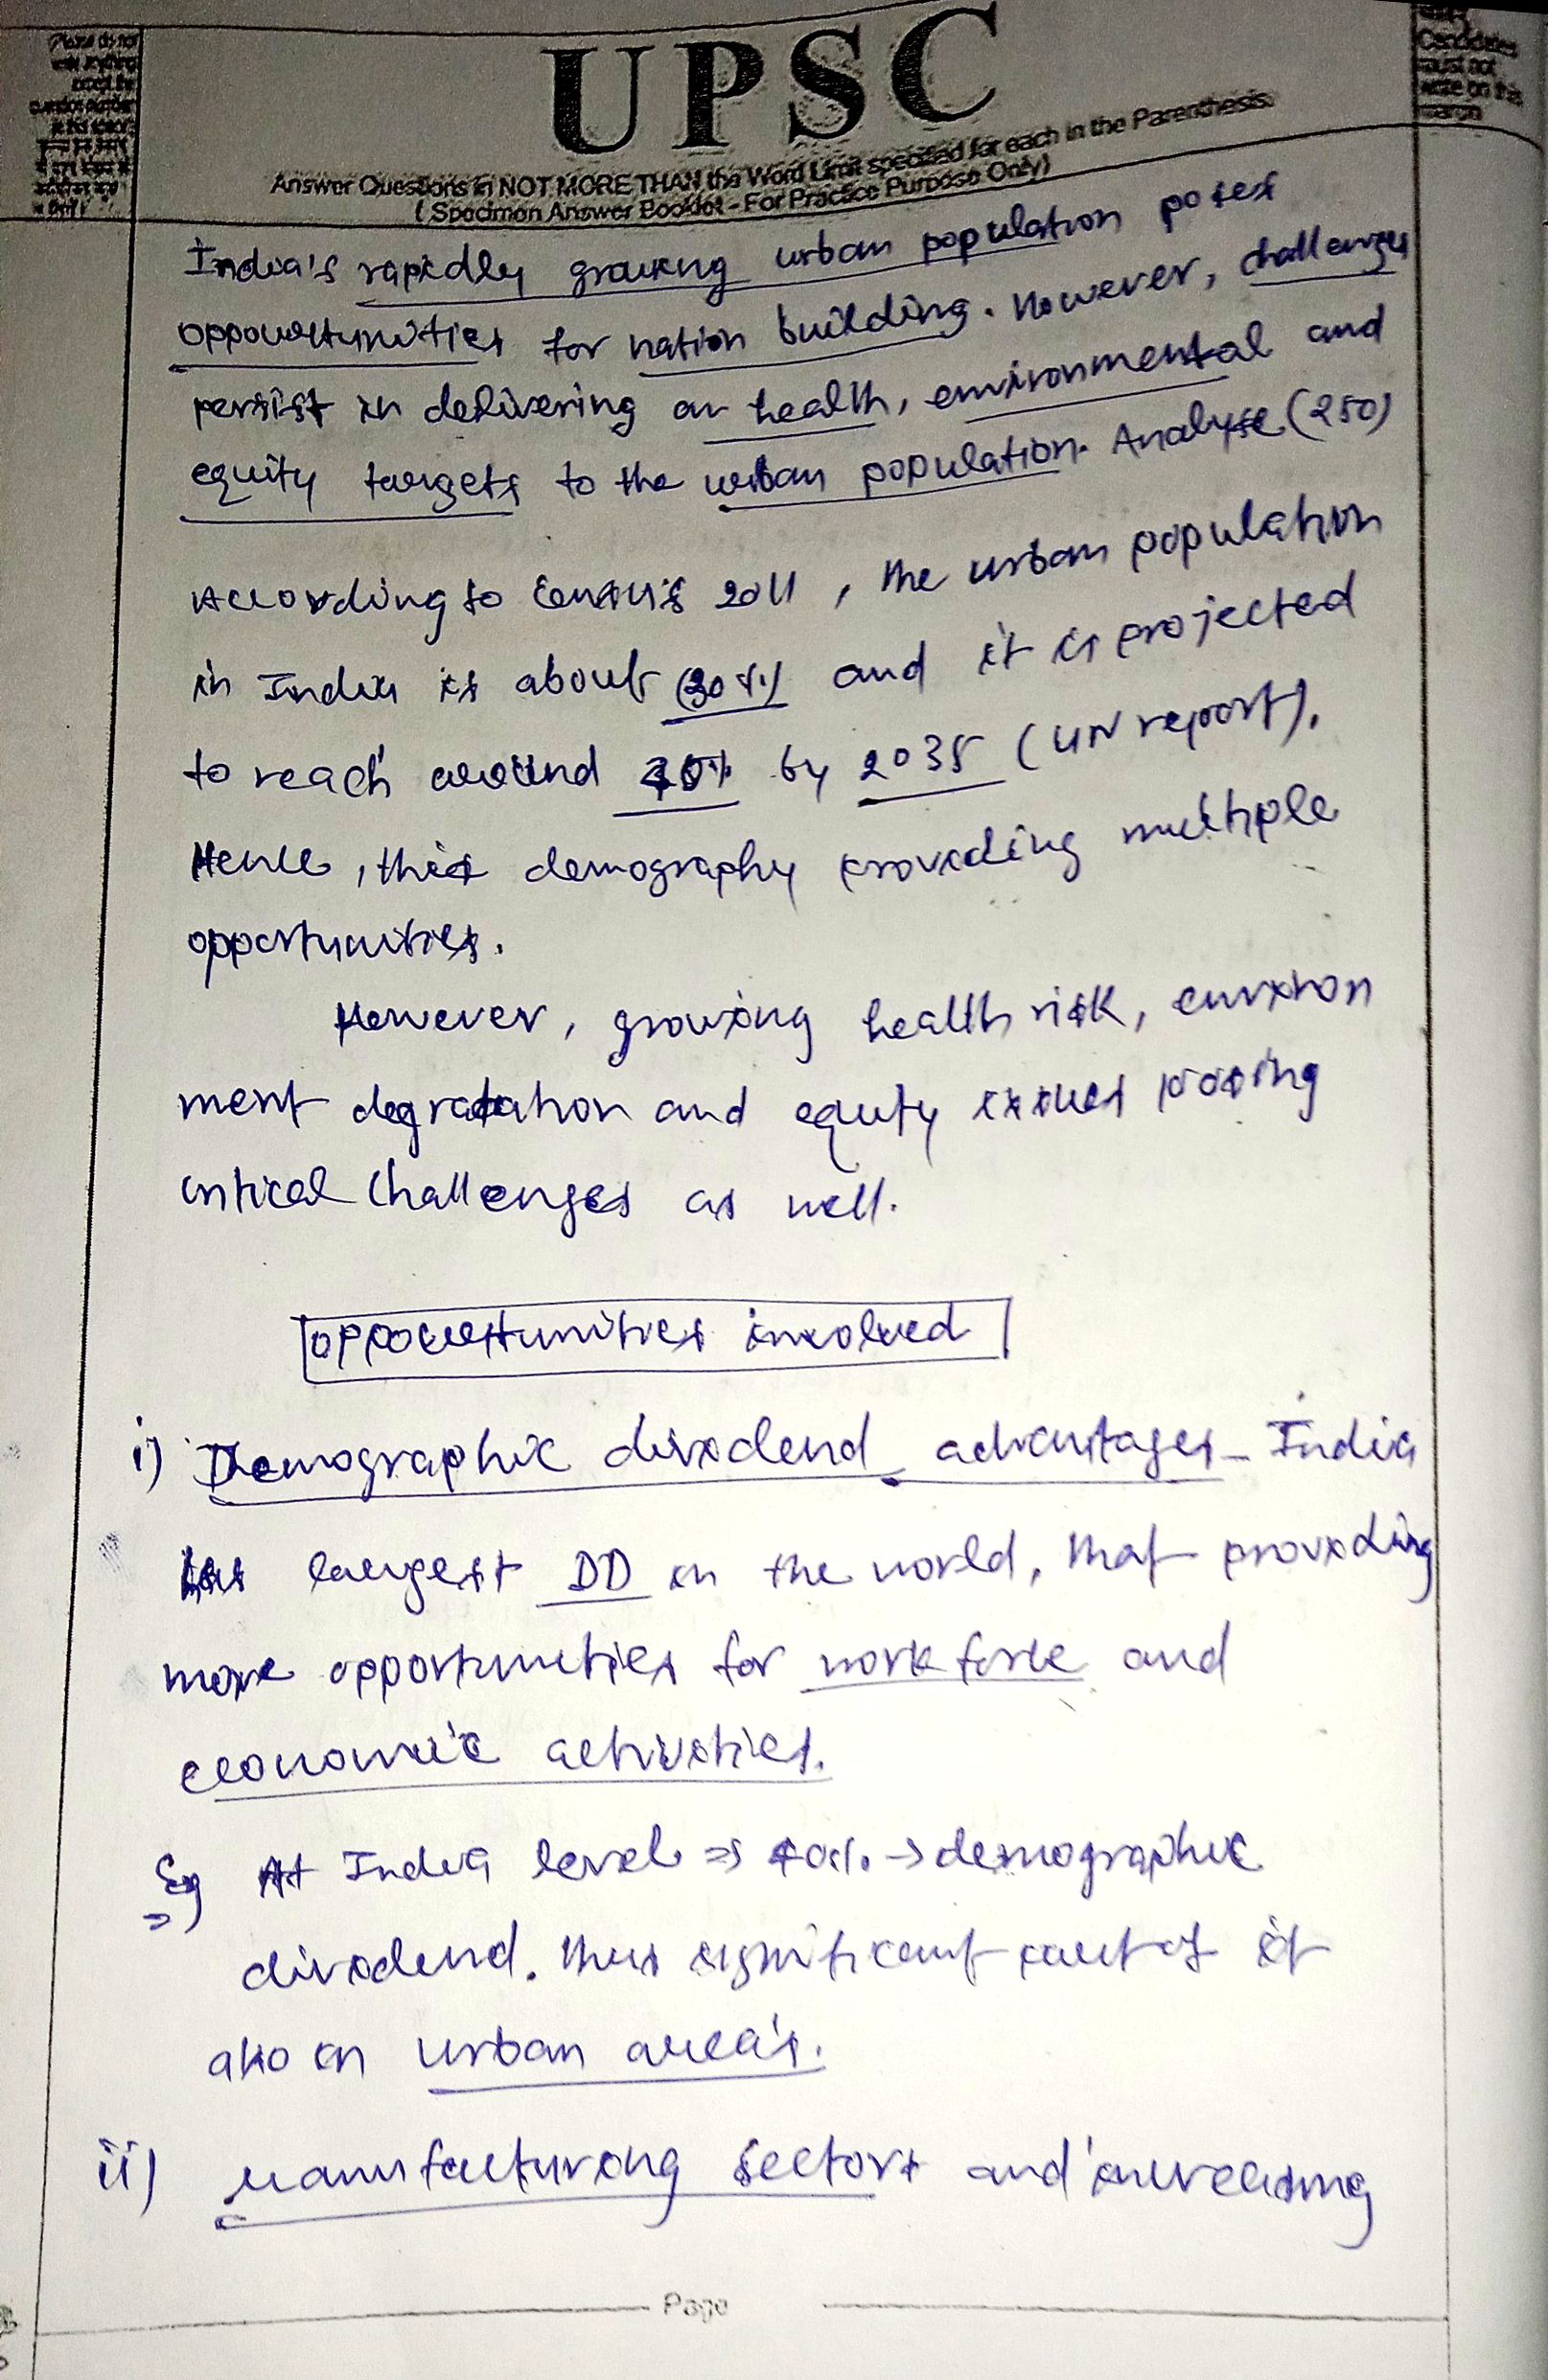 Please do not
write anything
except the
question number
in this space
UPSC
Candidates
must not
write on this
margin
Answer Questions in NOT MORE THAN the Word Limit specified for each in the Parenthesis.
( Specimen Answer Booklet - For Practice Purpose Only)
India's rapidly growing urban population poses
opportunities for nation building. However, challenges
persist in delivering on health, environmental and
equity targets to the urban population. Analyse (250)
According to Census 2011, the urban population
in India is about (30%) and it is projected
to reach around 40% by 2035 (UN report).
Hence, this demography providing multiple
opportunities.
However, growing health risk, environ
ment degradation and equity issues posing
critical challenges as well.
opportunities involved
i) Demographic dividend advantages - India
has largest DD in the world, that providing
more opportunities for workforce and
economic activities.
Eg At India level => 40%. → demographic
dividend. thus significant part of it
also in urban area's.
ii) Manufacturing sectors and increasing
Page